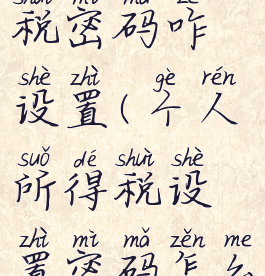 税密码咋
shè zhì gè rén
设置(个人
suǒ dé shuì shè
所得税设
zhì mì mǎ zěn me
置密码怎么